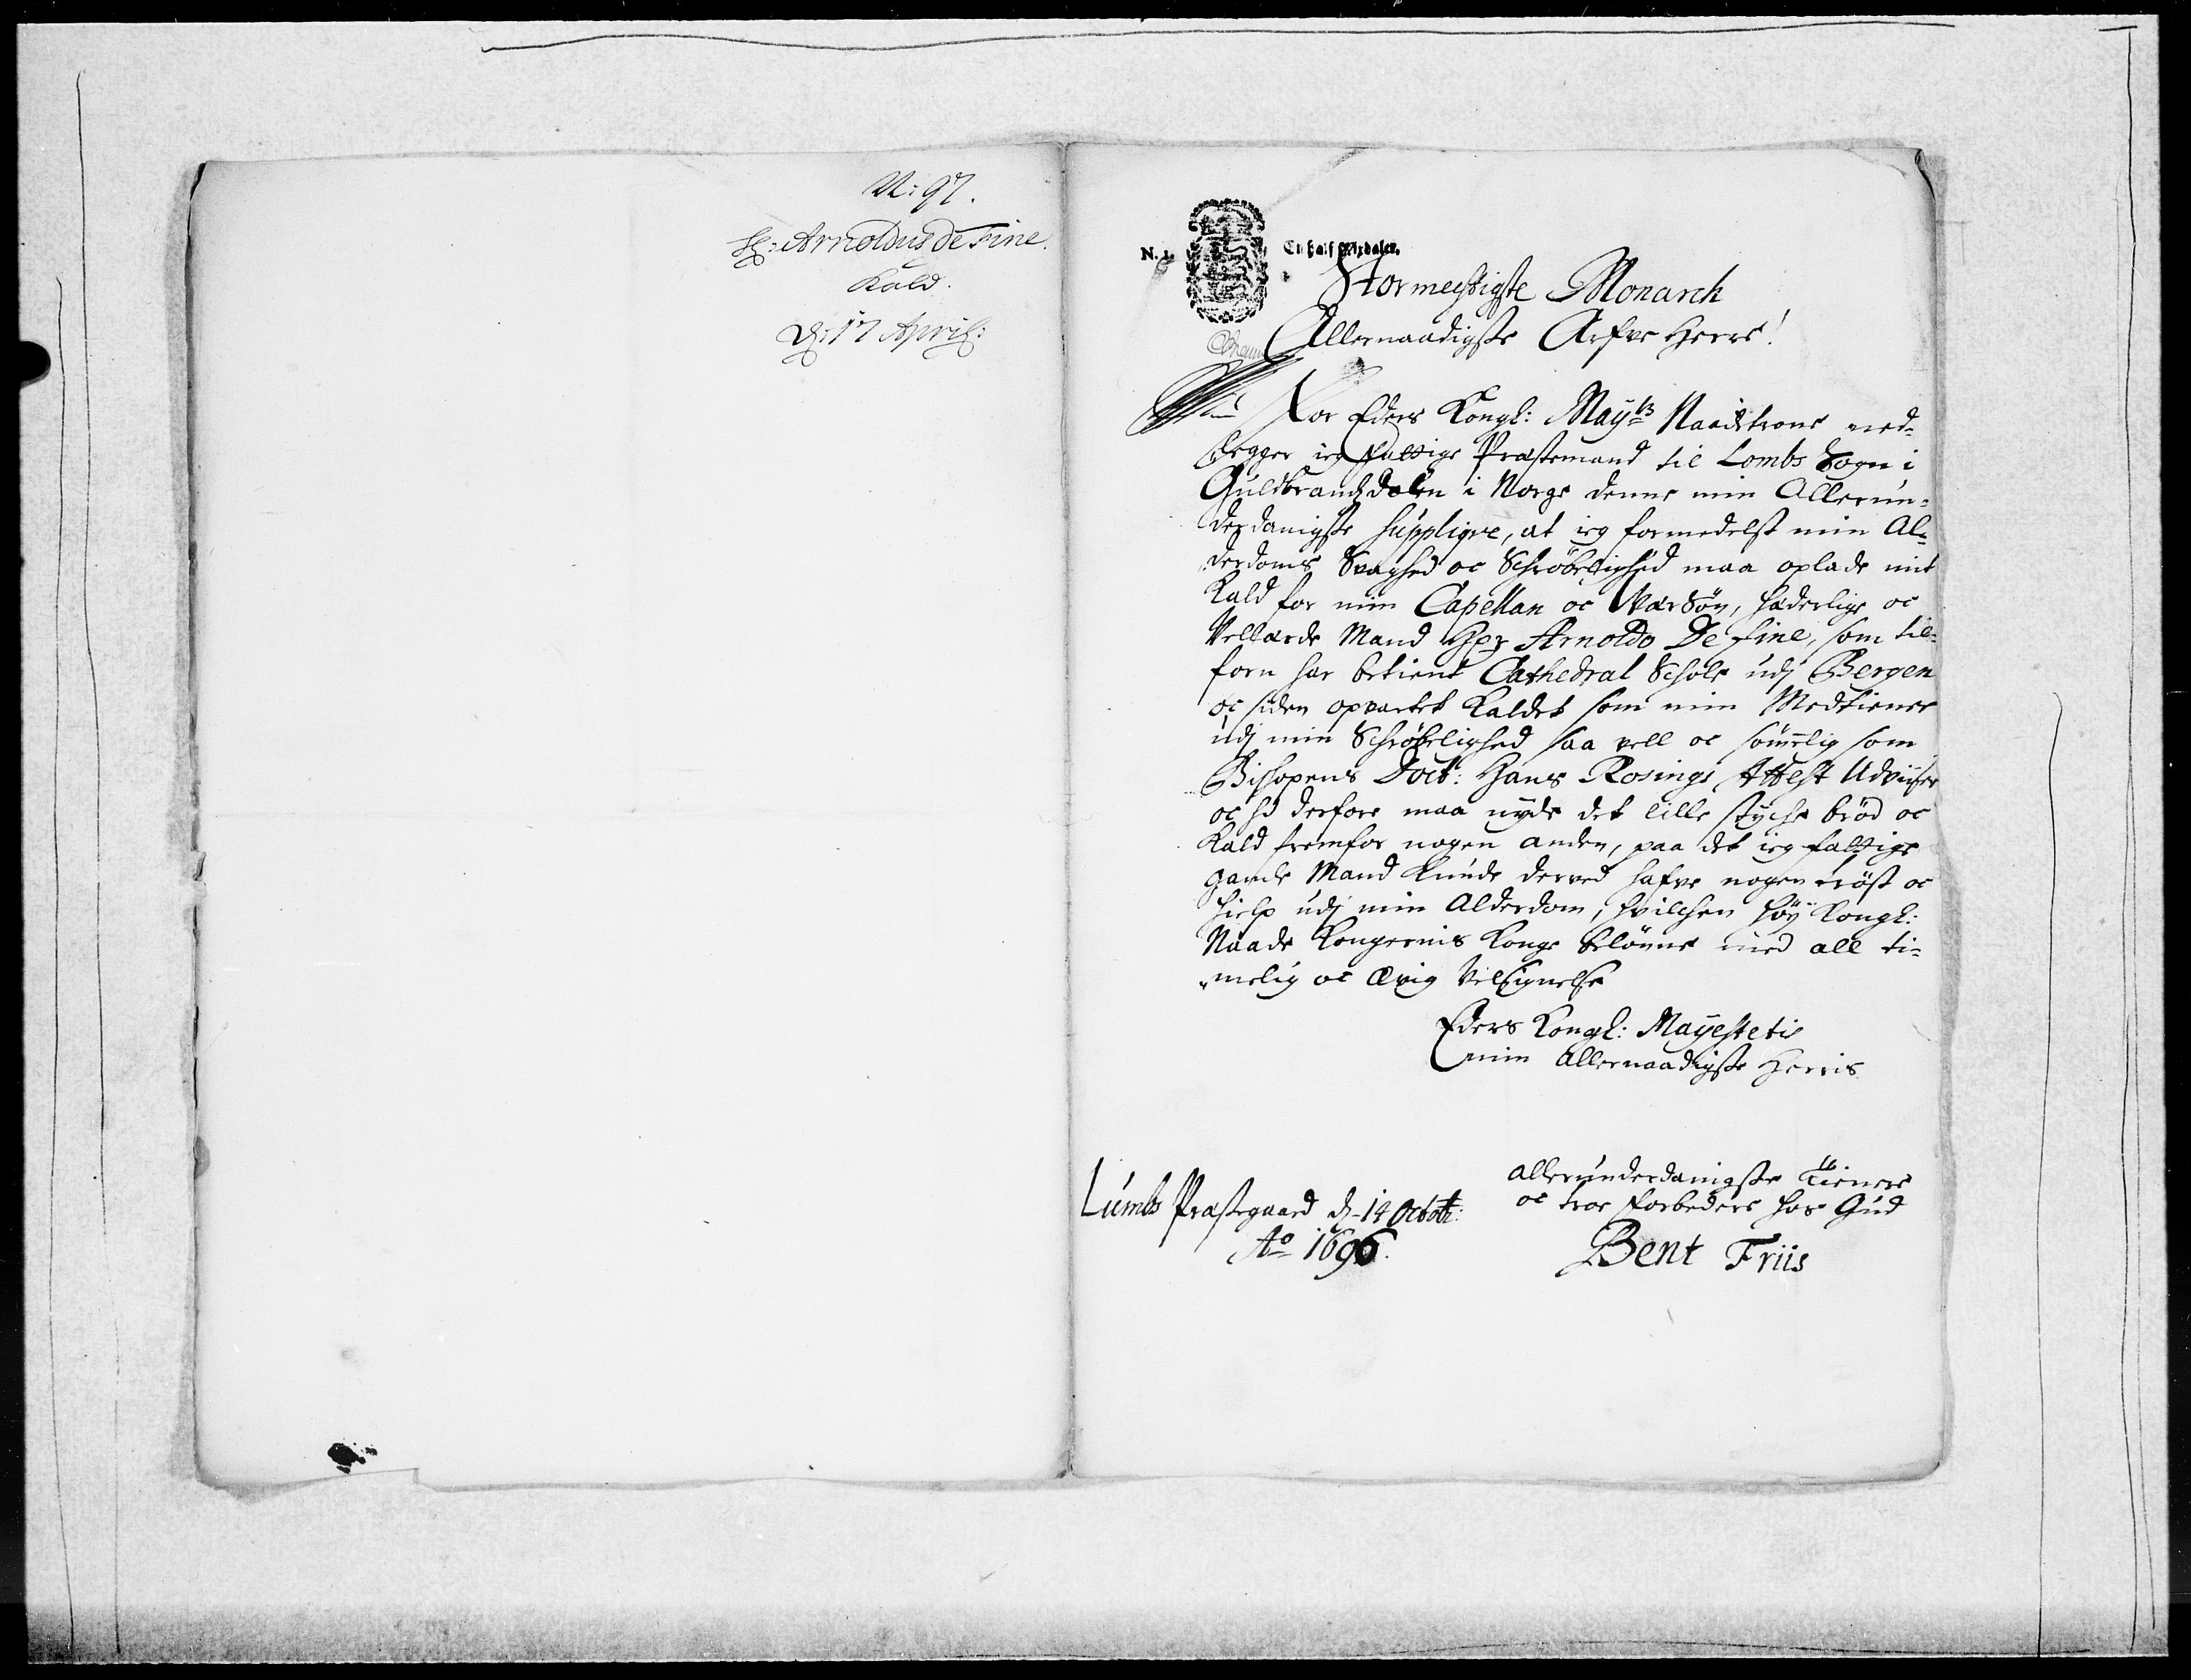 N: 97.
Hr: Arnoldus de Fine.
Kald.
d: 17 April:
N. 1.
En half Rixdaler.
Stormechtigste Monarch
Allernaadigste Arfve Herre!
For Eders Kongl: Maytz Naadetrone ned-
legger ieg fattige Præstemand til Lombs Sogn i
Guldbrandzdalen i Norge denne min Allerun-
derdanigste supplique, at ieg formedelst min Al-
derdoms Svaghed oc Schröbelighed maa oplade mit
Kald for min Capellan oc Værsøn, hæderlige oc
Vellærde Mand Her Arnoldo De fine, som til-
forn har betient Cathedral Schole udj Bergen
oc siden opvartet Kaldet som min Medtiener
udj min Schröbelighed saa vell oc sömmelig som
Bishopens Doct: Hans Rosings Attest Udviiser
oc hd derfore maa nyde det lille styche bröd oc
Kald fremfor nogen anden, paa det ieg fattige
gamle Mand kunde derved hafve nogen tröst oc
hielp udj min Alderdom, hvilchen höy Kongl:
Naade Kongernis Konge belönne med all ti-
melig oc Ævig Velsignelse
Eders Kongl: Mayestetis
min Allernaadigste Herris
allerunderdanigste Tienere
oc troe forbedere hos Gud
Bent Friis
Lumbs Præstegaard d. 14 Octobr:
Ao 1696.